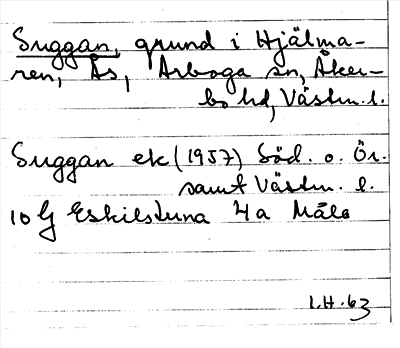 Suggan, grund i Hjälma-
ren, Ås, Arboga sn, Åker-
bo hd, Västm. l.
Suggan ek (1957) Söd. o. Ör.
samt Västm. l.
10 G Eskilstuna 4a Mälö
I.H. 63